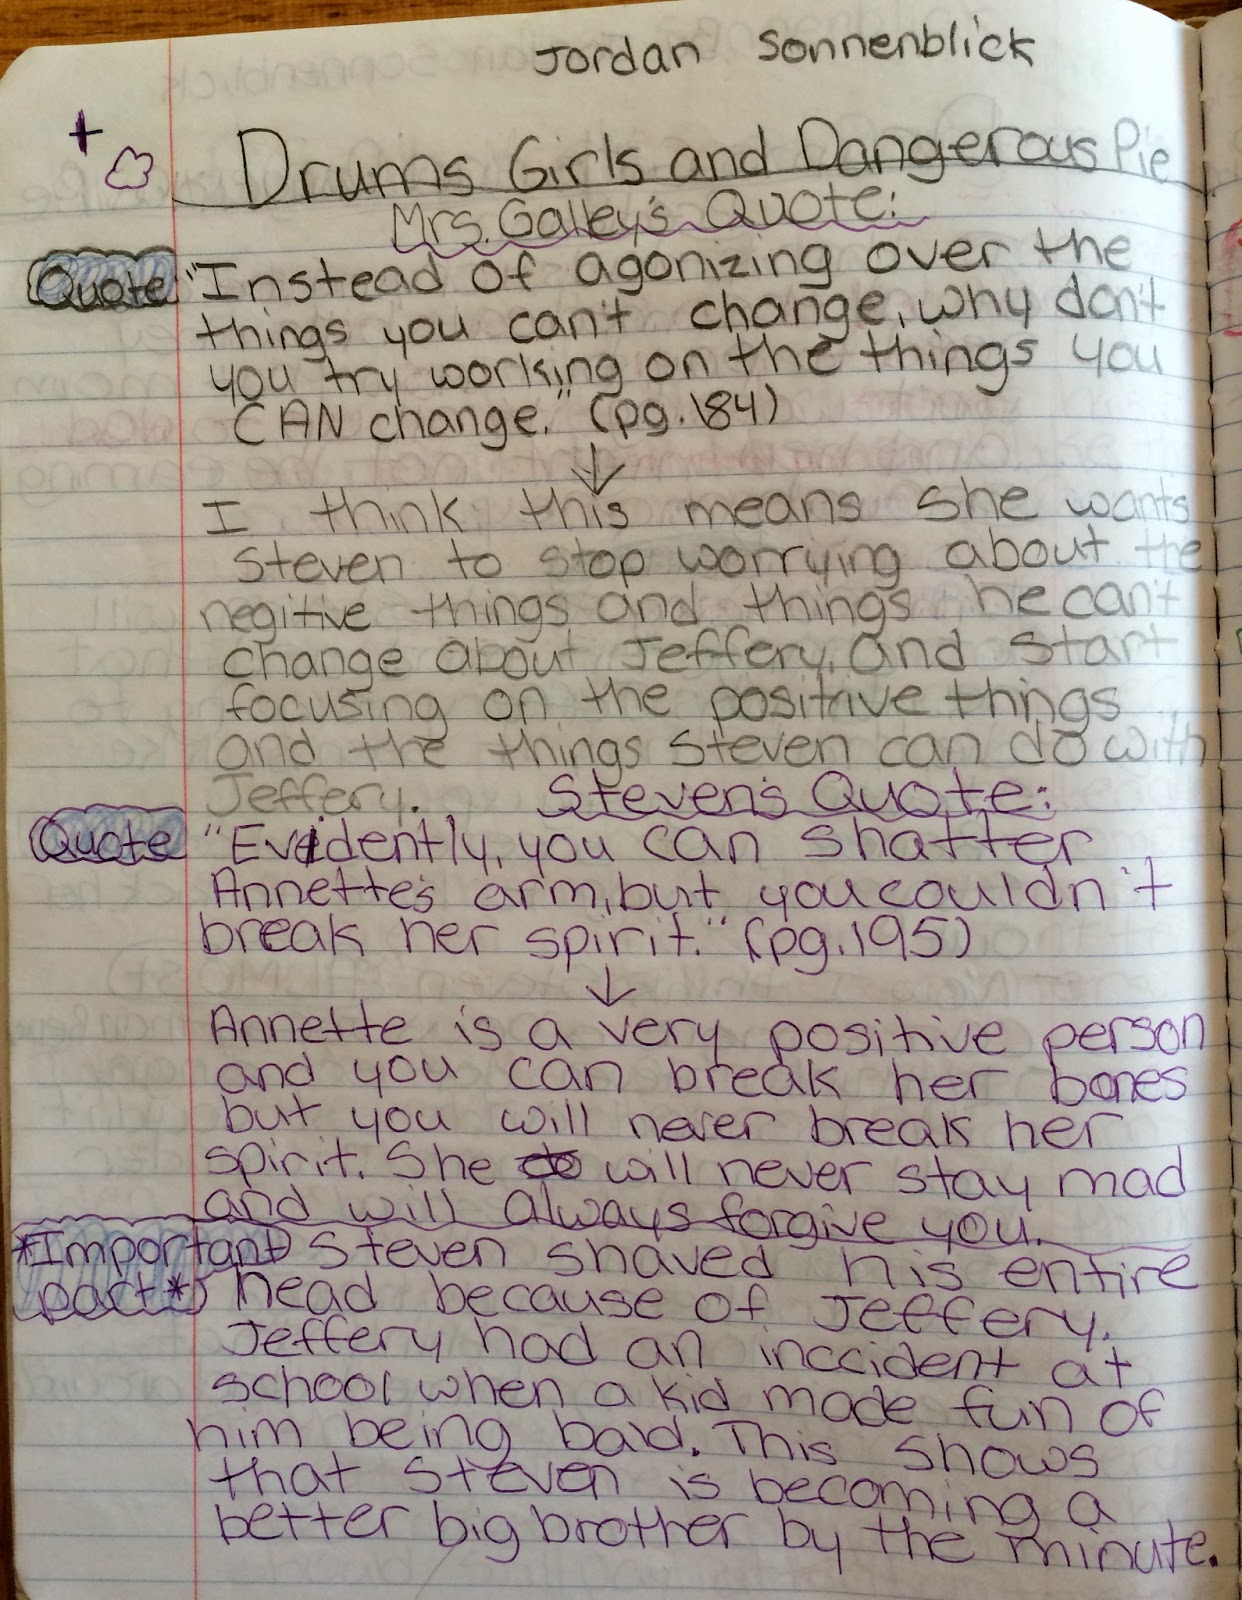 Jordan Sonnenblick
Drums Girls and Dangerous Pie
Mrs. Galley's Quote:
Quote "Instead of agonizing over the
things you can't change, why don't
you try working on the things you
CAN change." (pg.184)
I think this means she wants
Steven to stop worrying about the
negitive things and things he can't
change about Jeffery, and start
focusing on the positive things
and the things Steven can do with
Jeffery. Steven's Quote:
Quote "Evidently, you can shatter
Annette's arm, but you couldn't
break her spirit." (pg.195)
Annette is a very positive person
and you can break her bones
but you will never break her
spirit. She will never stay mad
and will always forgive you.
*Important Steven shaved his entire
part* head because of Jeffery.
Jeffery had an inccident at
school when a kid made fun of
him being bald. This shows
that Steven is becoming a
better big brother by the minute.